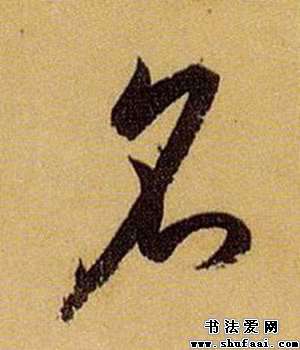 名
书法爱网
www.shufaai.com